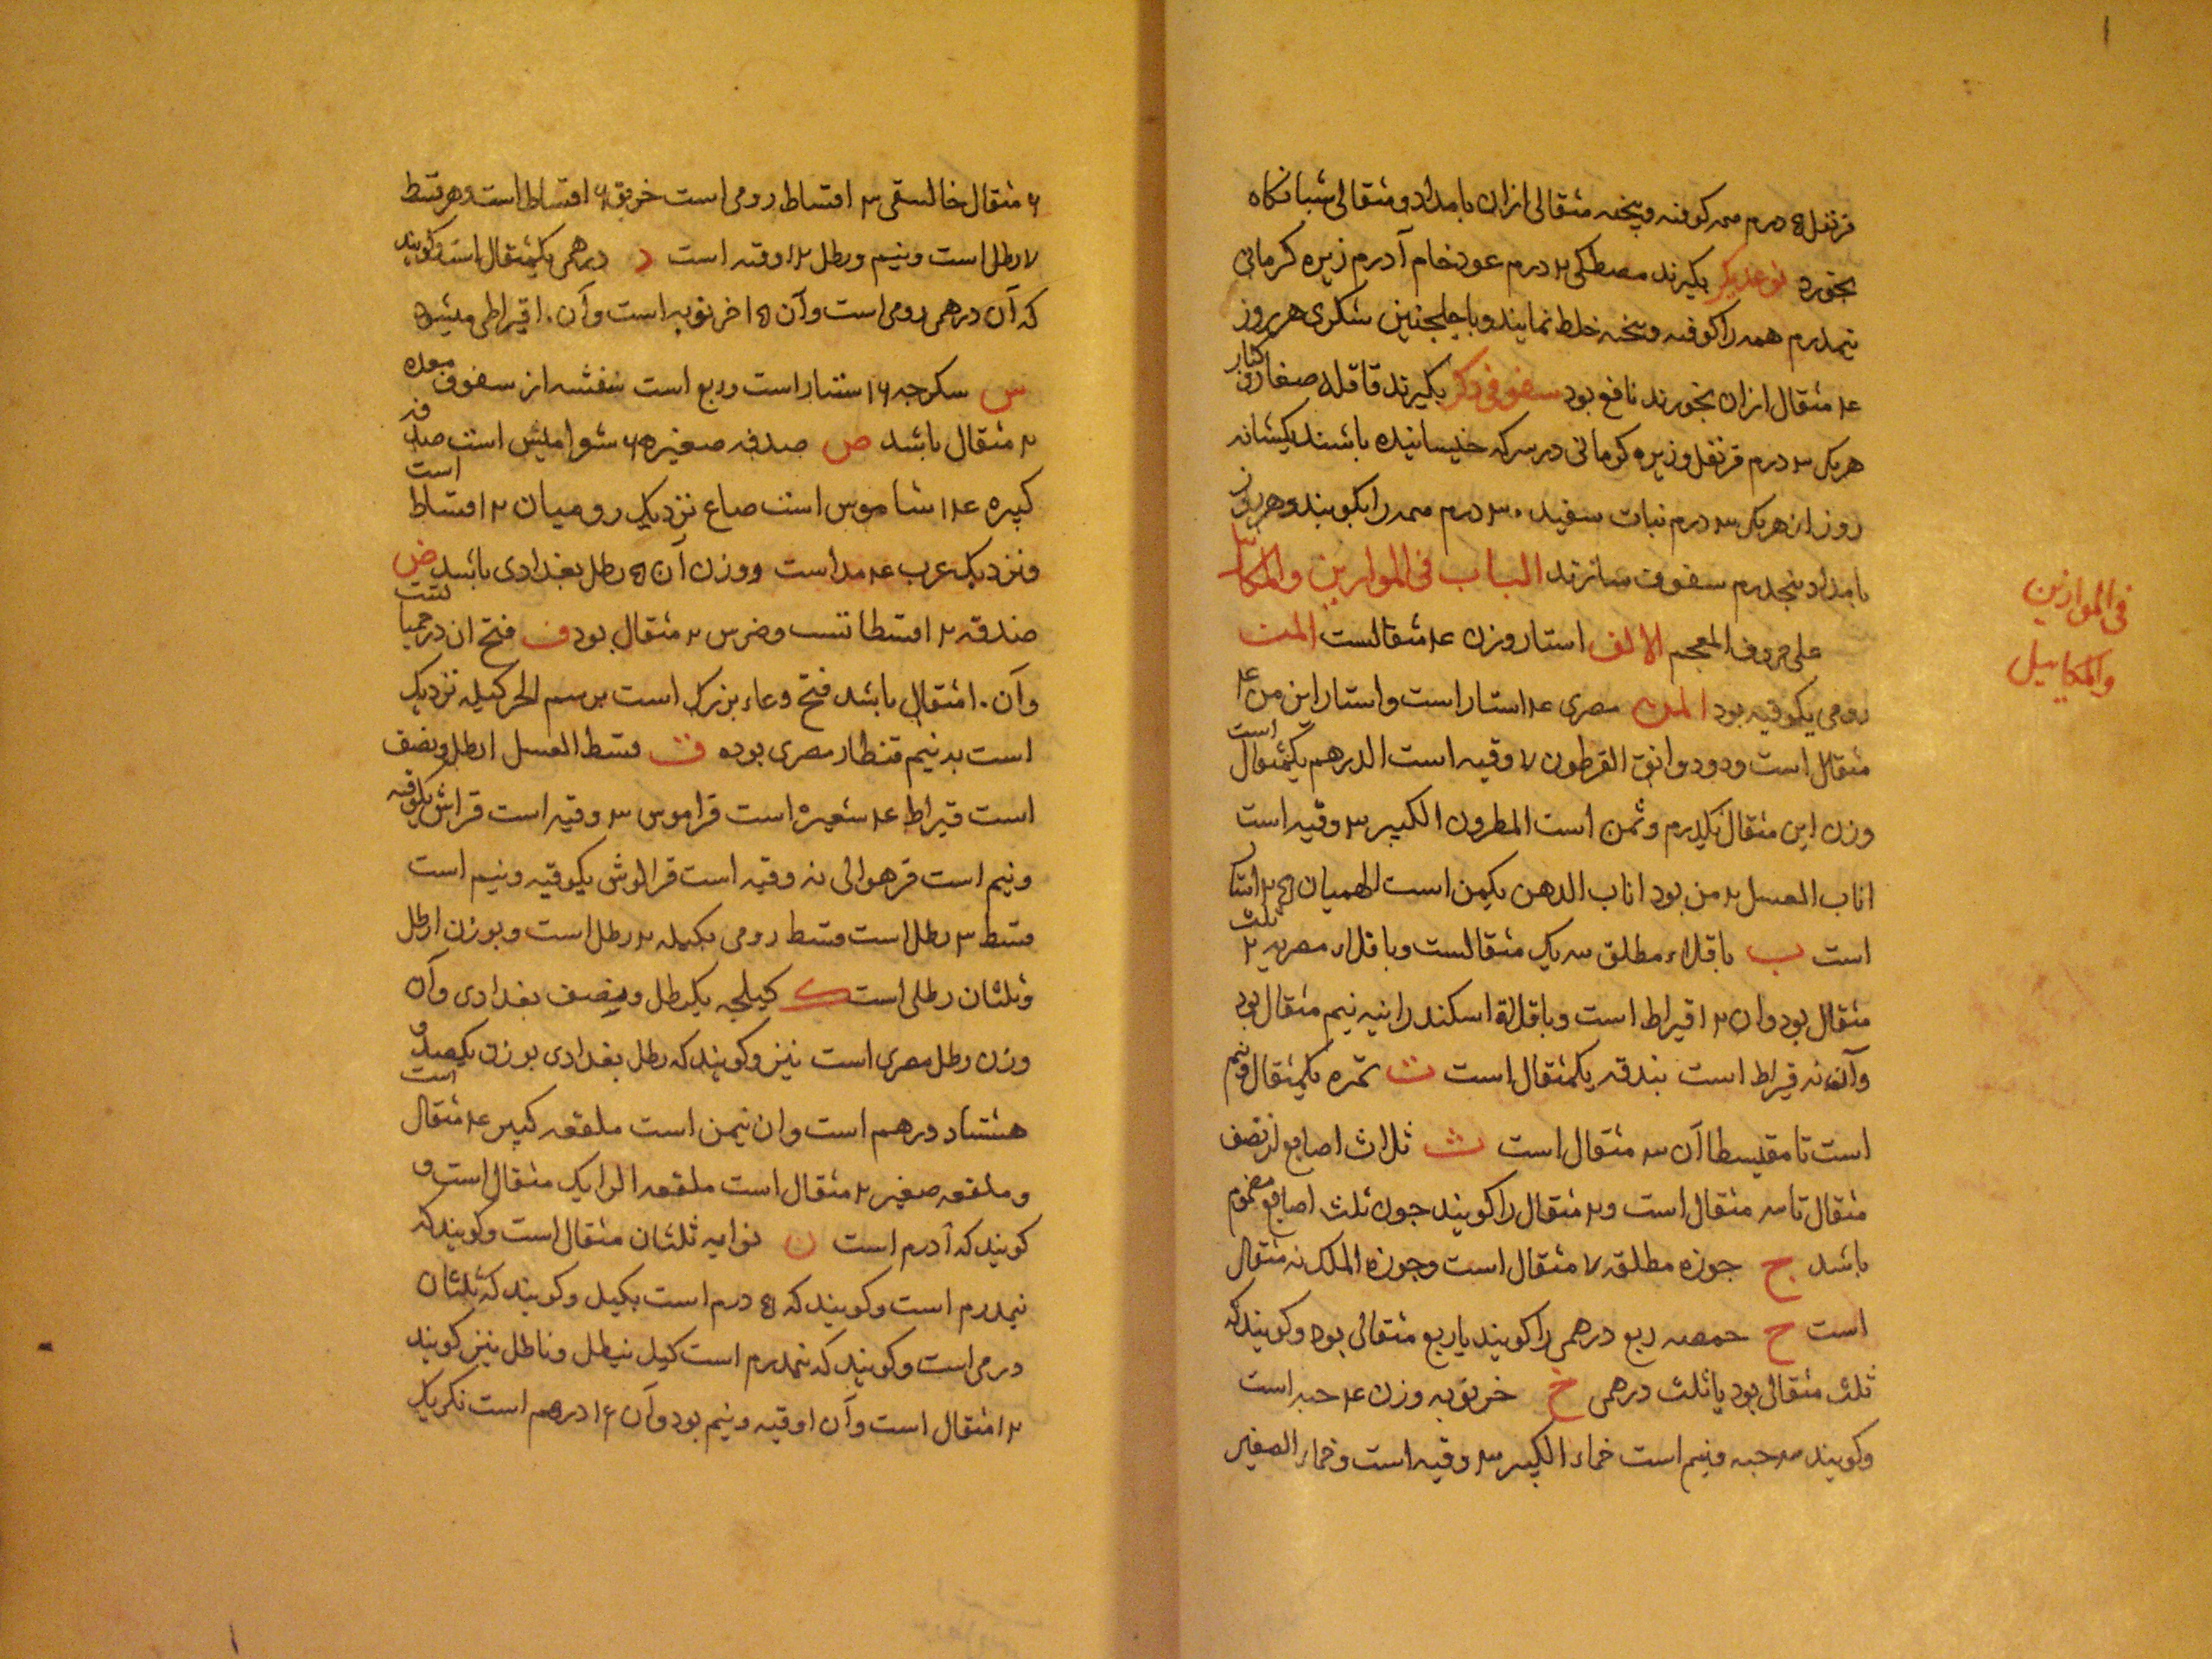 قرنفل ۵ درم همه کوفته و بیخته مثقالی ازان بامداد و مثقالی شبانکاه
بخورد نوعدیکر بکیرند مصطکی ۲ درم عود خام ۱ درم زیره کرمانی
نیمدرم همه را کوفته و بیخته خلط نمایند و با جلنجبین شکری هر روز
۴ مثقال ازان بخورند نافع بود سفوفی دکر بکیرند قاقله صغار و کبار
هریک ۳ درم قرنفل و زیره کرمانی در سرکه خیسانیده باشند یکشبانه
روز از هریک ۳ درم نبات سفید ۳۰ درم همه را بکوبند و هر روز
بامداد پنجدرم سفوف سازند الباب فی الموازین والمکا
فی الموازین
والمکاییل
علی حروف المعجم الالف استار وزن ۴ مثقالست المن
رومی یکوقیه بود المن مصری ۴ استار است و استار این من ۴
مثقال است و دو دوانق القرطون ۷ وقیه است الدرهم یکمثقال است
وزن این مثقال یکدرم و ثمن است المطرون الکبیر ۳ وقیه است
اناب العسل ۲ من بود اناب الدهن یکمن است
است ب باقلاء مطلق سه یک مثقالست و باقلاء مصریه ۲ ثلث
مثقال بود وان ۱۲ قیراط است و باقلاة اسکندرانیه نیم مثقال بود
وآن نه قیراط است بندقه یکمثقال است ت تمره یکمثقال و نیم
است تا مقیسطا آن ۳ مثقال است ث ثلاث اصابع از نصف
مثقال تا سه مثقال است و ۲ مثقال را کویند چون ثلث اصابع مضموم
باشد ج جوزه مطلقه ۷ مثقال است و جوزه الملک نه مثقال
است ح حمصه ربع درهمی را کویند یا ربع مثقالی بود و کویند که
ثلث مثقالی بود یا ثلث درهمی خ خرنوبه وزن ۴ حبه است
و کویند سه حبه و نیم است خماء الکبیر ۳ وقیه است و خماء الصغیر
۶ مثقال خالسقی ۳ اقساط رومی است خریق ۶ اقساط است و هر قسط
۷ رطل است و نیم و رطل ۱۲ اوقیه است د درهمی یکمثقال است و کویند
که آن درهمی رومی است و آن ۱۵ خرنوبه است و آن ۱۰ قیراطی میشود
س سکرجه ۱۶ ستار است و ربع است بنفشه از سفوف بوده
۲ مثقال باشد ص صدفه صغیره ۶ شوامیش است صدفه
کبیره ۱۴ شاموس است صاع نزدیک رومیان ۲ اقساط است
و نزدیک عرب ۴ مد است و وزن آن ۵ رطل بغدادی باشد ض
صدقه ۲ اقسطا تست و ضرس ۲ مثقال بود ف فتح ان درحمیا
وآن ۱۰ مثقال باشد فتح وعاء بزرک است برسم الحر کیله نزدیک
است بدنیم قنطار مصری بوده ق قسط العسل ا رطل و نصف
است قیراط ۴ شعیره است قراموس ۳ وقیه است قراش یکوقیه
و نیم است قرهوالی نه وقیه است قرالوش یکوقیه و نیم است
قسط ۳ رطل است قسط رومی بکیله ۲ رطل است و بوزن ا رطل
و ثلثان رطلی است ک کیلجه یکرطل و نصف بغدادی وآن
وزن رطل مصری است نیز و کویند که رطل بغدادی بوزن یکصد و
هشتاد درهم است وان نیمن است ملعقه کبیر ۴ مثقال است
و ملعقه صغیر ۲ مثقال است ملعقه الوا یک مثقال است و
کویند که ۱ درم است ن نوایه ثلثان مثقال است و کویند که
نیمدرم است و کویند که ۵ درم است بکیل و کویند که ثلثان
درمی است و کویند که نیمدرم است کیل نیطل و ناطل نیز کویند
۱۲ مثقال است و آن ا وقیه و نیم بود و آن ۱۶ درهم است نکریک